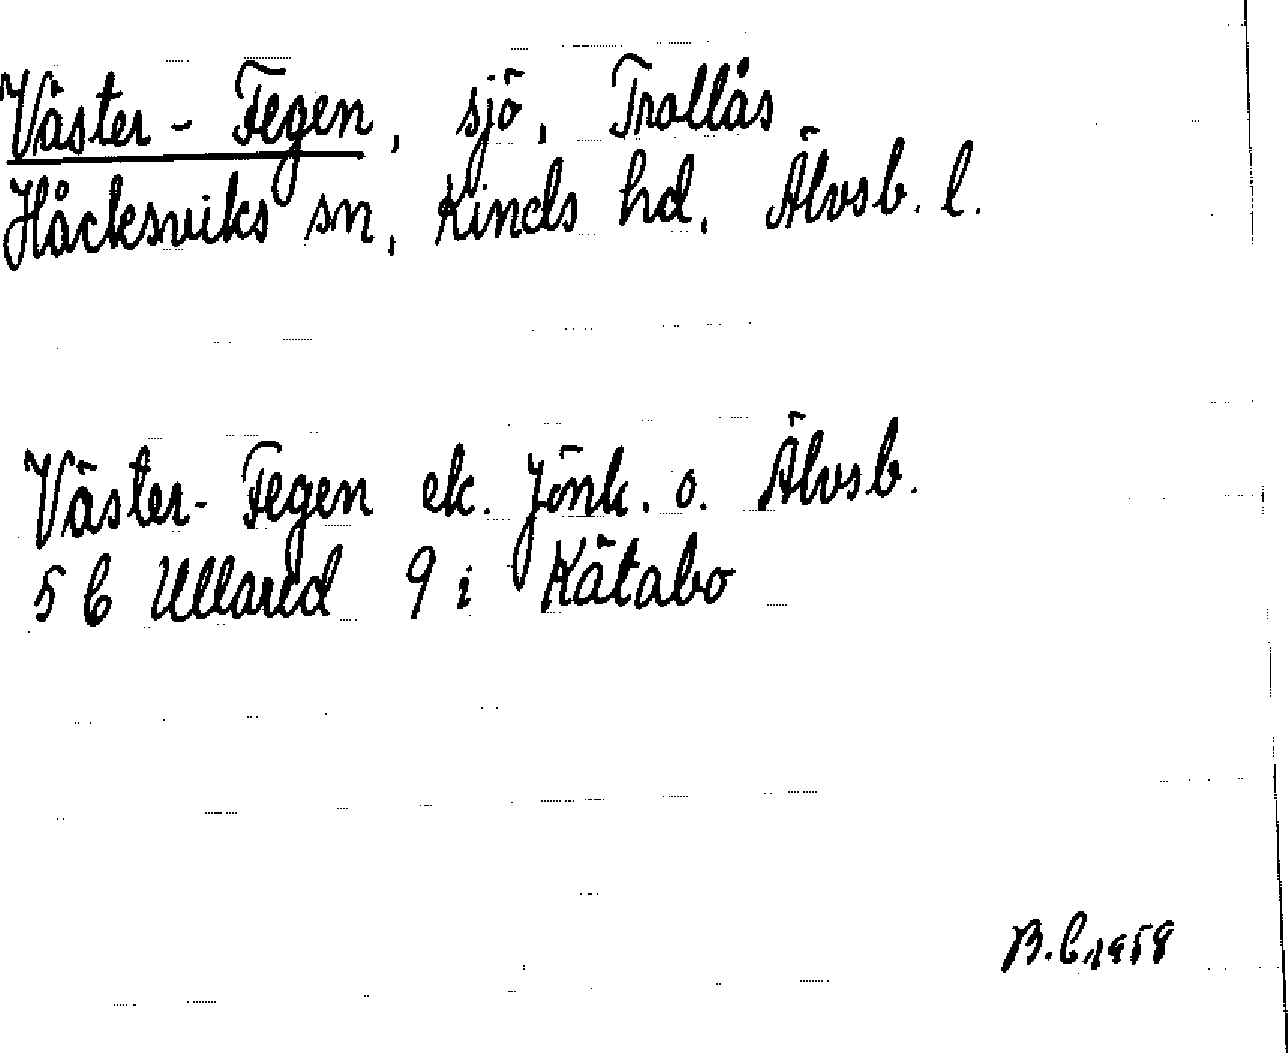 Väster-Fegen, sjö, Trollås
Håcksviks sn, Kinds hd, Älvsb. l.
Väster-Fegen ek. Jönk. o. Älvsb.
5 C Ullared 9 i Kätabo
B.E. 1958